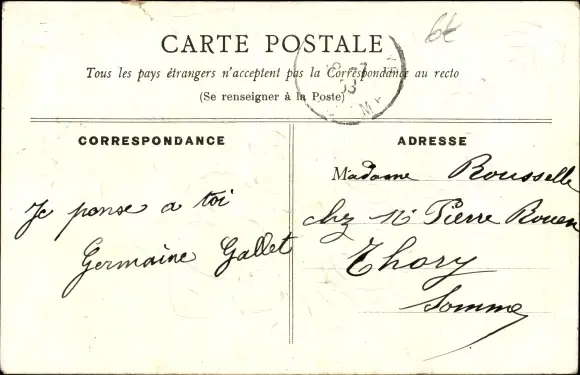 6€
CARTE POSTALE
Tous les pays étrangers n'acceptent pas la Correspondance au recto
(Se renseigner à la Poste)
CORRESPONDANCE
Je pense a toi
Germaine Gallet
ADRESSE
Madame Rousselle
chez Mr Pierre Rouen
Thory
Somme